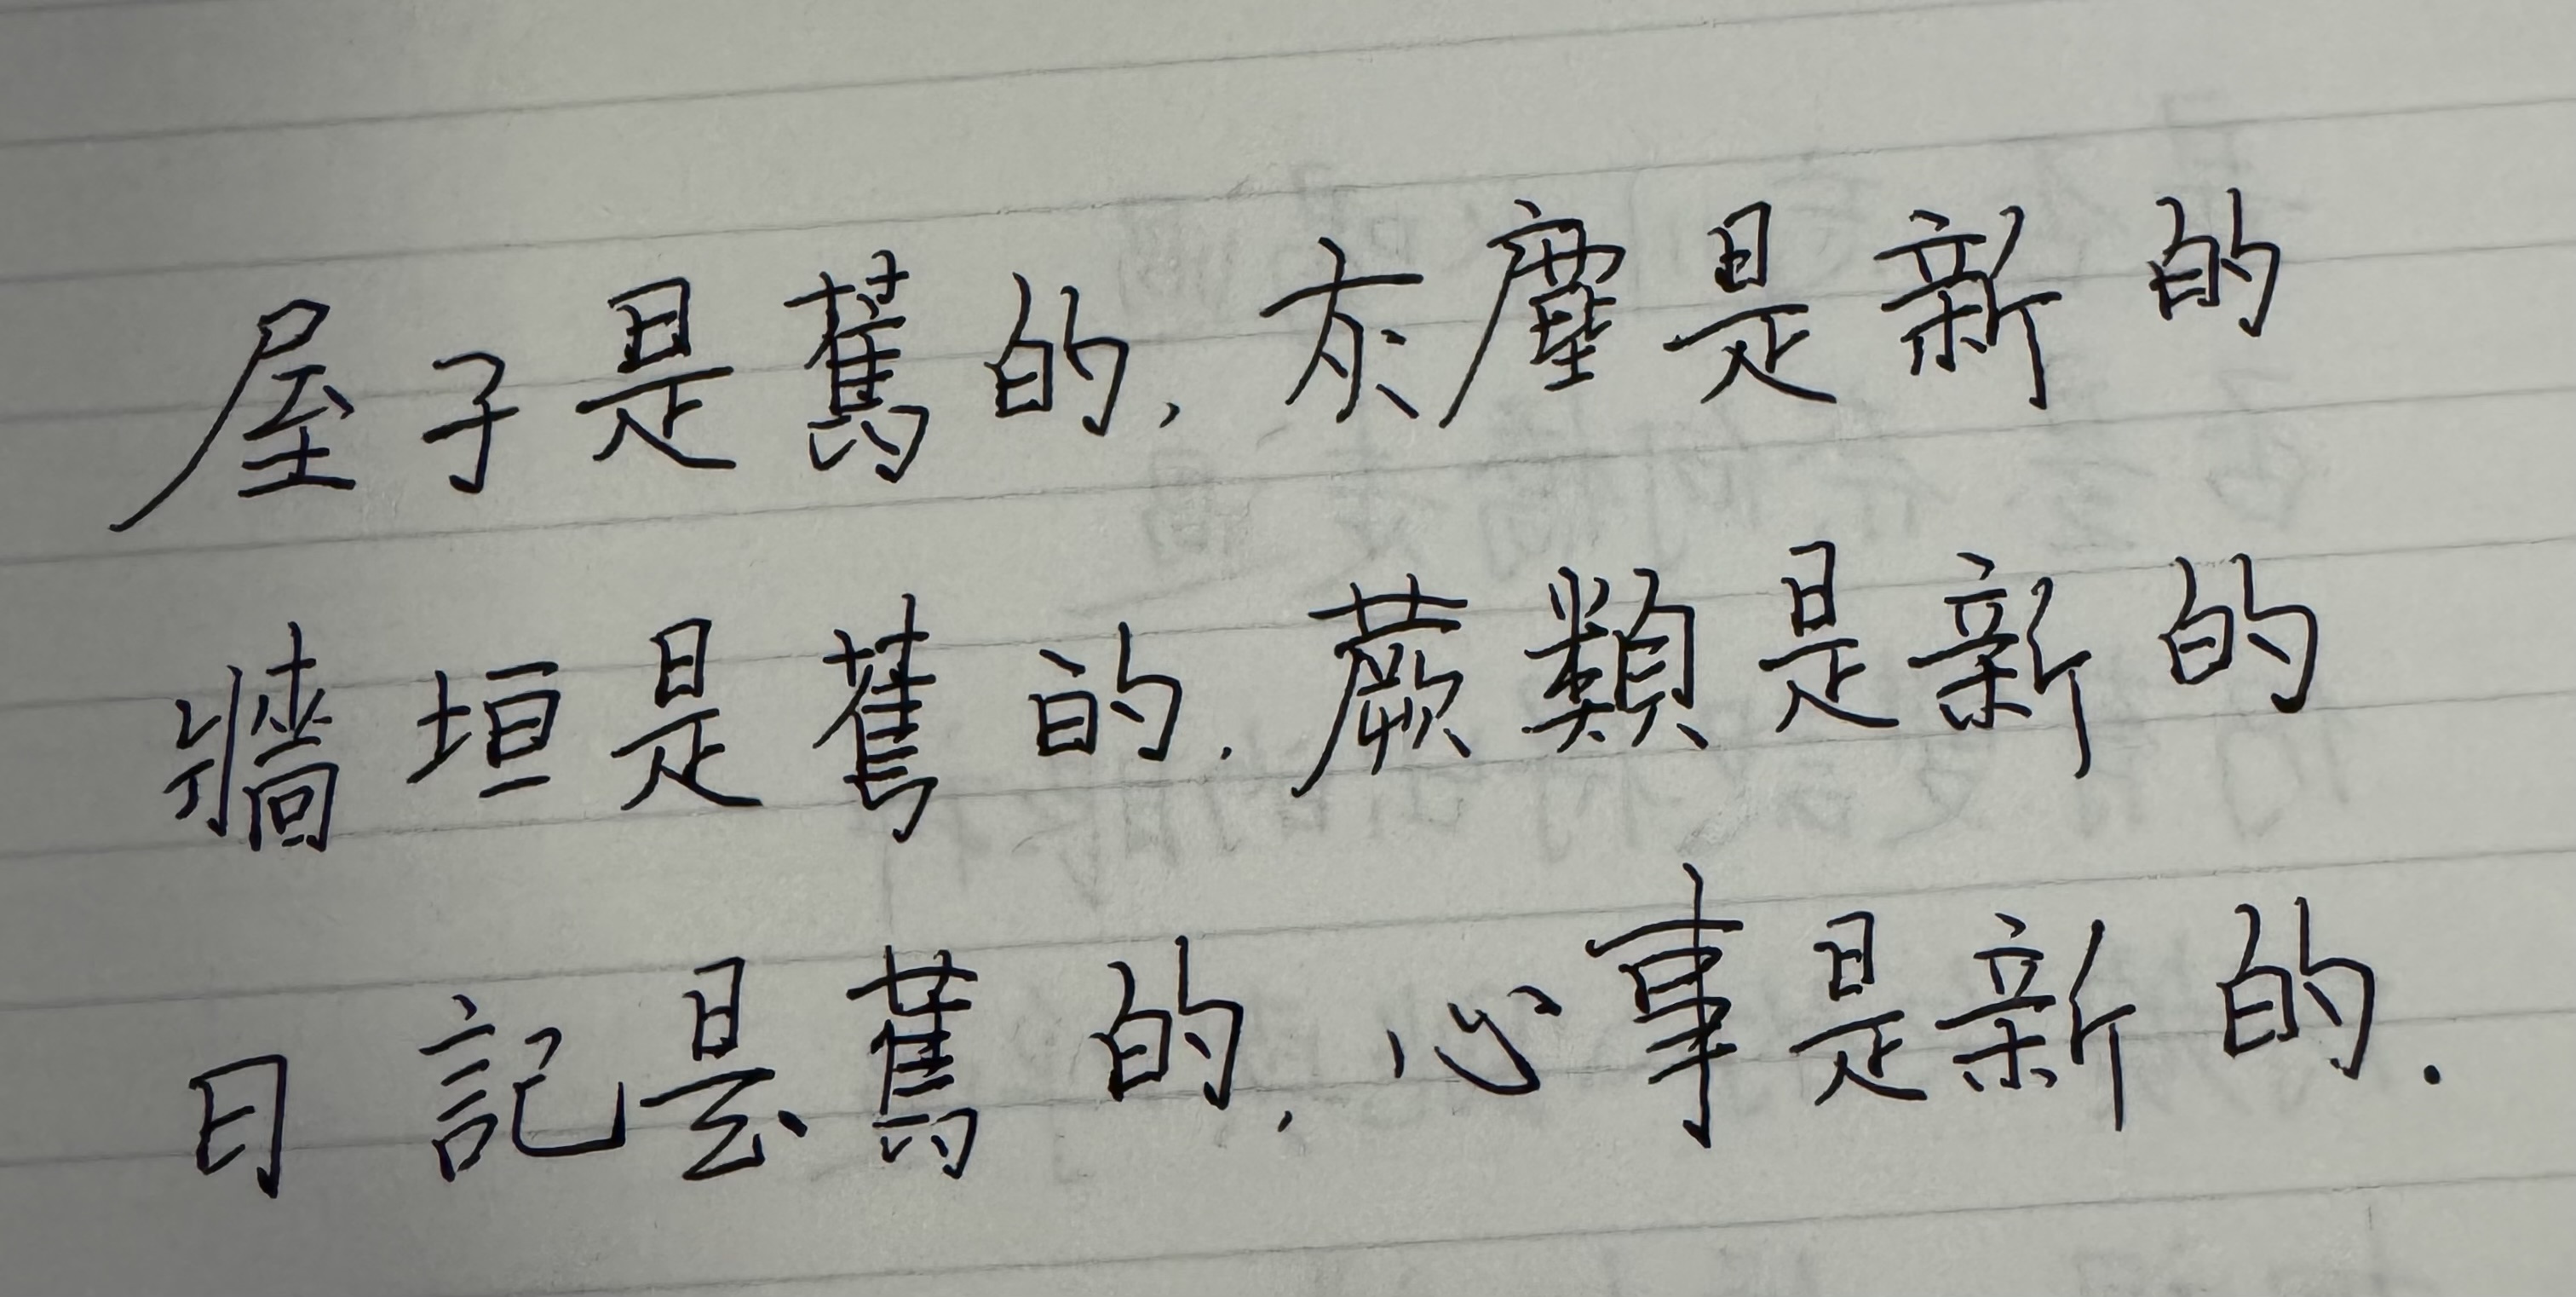 屋子是舊的,灰塵是新的
牆垣是舊的,蕨類是新的
日記是舊的,心事是新的.